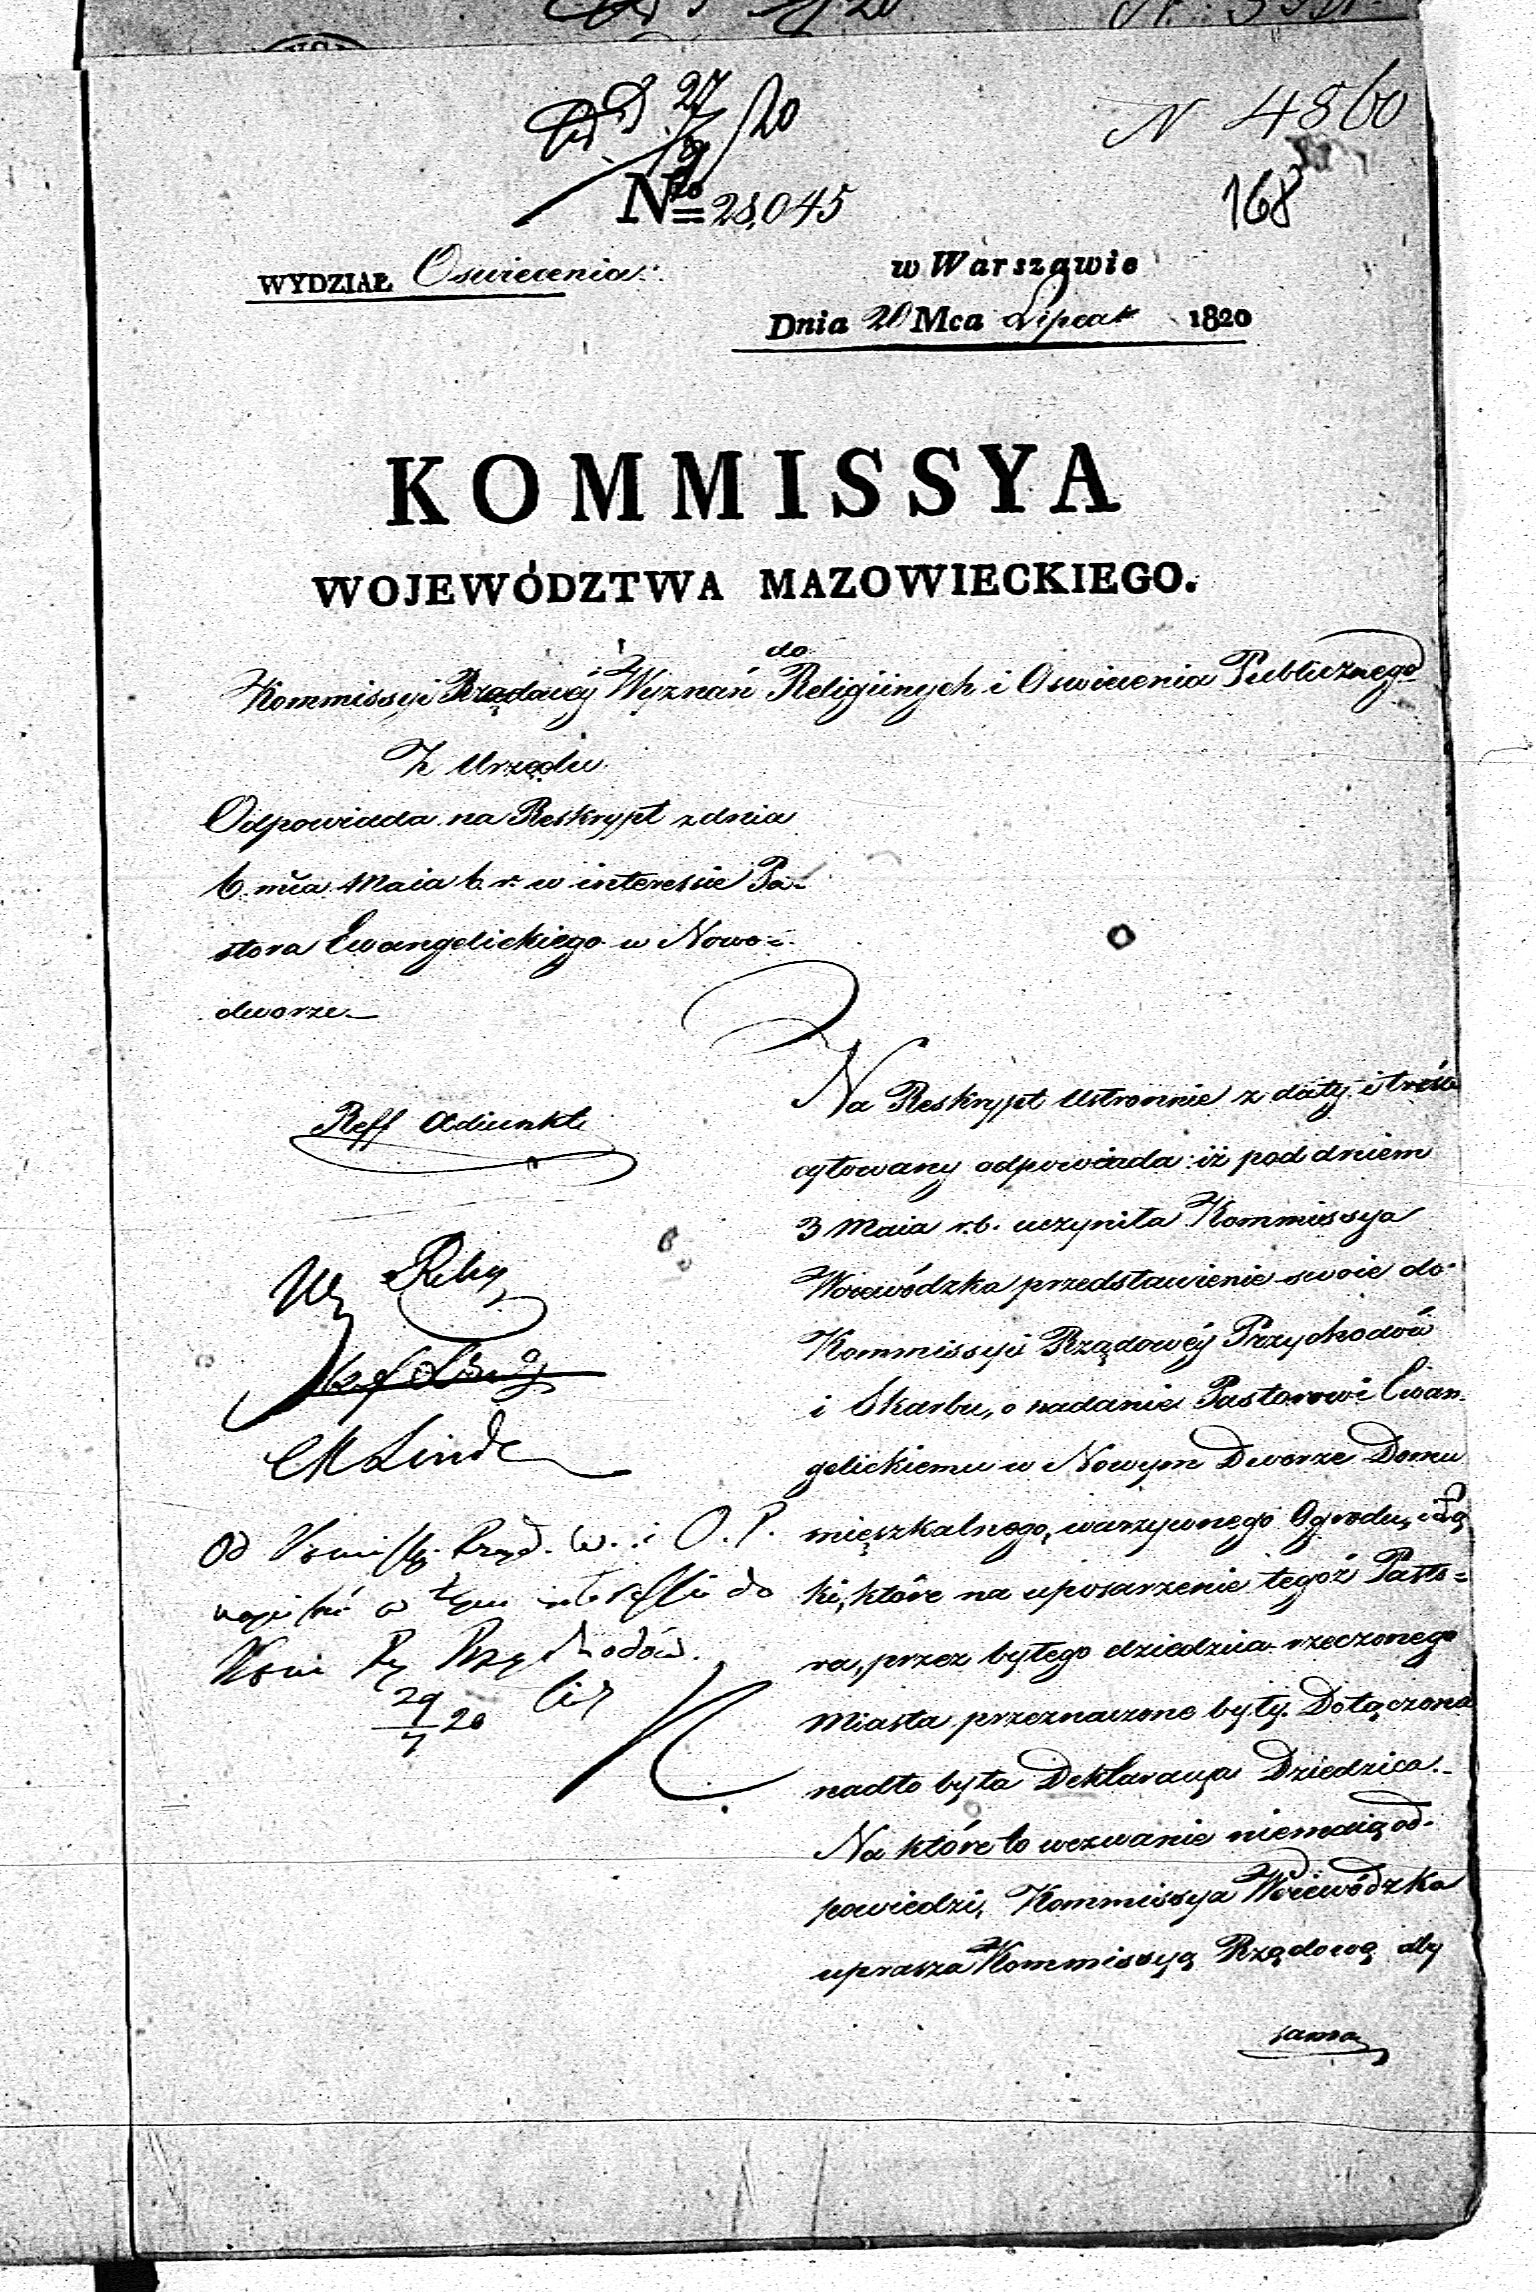 N 4860
27/7 20
168
Nro 28,045
WYDZIAŁ Oswiecenia
w Warszawie
Dnia 20 Mca Lipca 1820
KOMMISSYA
WOJEWÓDZTWA MAZOWIECKIEGO.
do
Kommissyi Rządowéy Wyznań Religiinych i Oswiecenia Publicznego
Z Urzędu
Odpowiada na Reskrypt z dnia
6. mca Maia b. r. w interessie Pa-
stora Ewangelickiego w Nowo-
dworze.
Reff Adiunkt
Na Reskrypt ustronnie z daty i treści
cytowany odpowiada: iż pod dniem
3 Maia r. b. uczyniła Kommissya
Woiewódzka przedstawienie swoie do
Kommissyi Rządowéy Przychodów
i Skarbu, o nadanie Pastorowi Ewan-
gelickiemu w Nowym Dworze Domu
mięszkalnego, warzywnego Ogrodu, i Łą
ki, które na uposarzenie tegoż Pasto=
ra, przez byłego dziedzica rzeczonego
Miasta przeznaczone były. Dołączona
nadto była Deklaracya Dziedzica.
Na które to wezwanie niemaią od-
powiedzi, Kommissya Woiewódzka
uprasza Kommissyą Rządową aby
sama
M Linde
Od Kommissyi Rząd. W. i O. P.
napisać w tym interessie do
Kom Rz Przychodów.
29/7 20